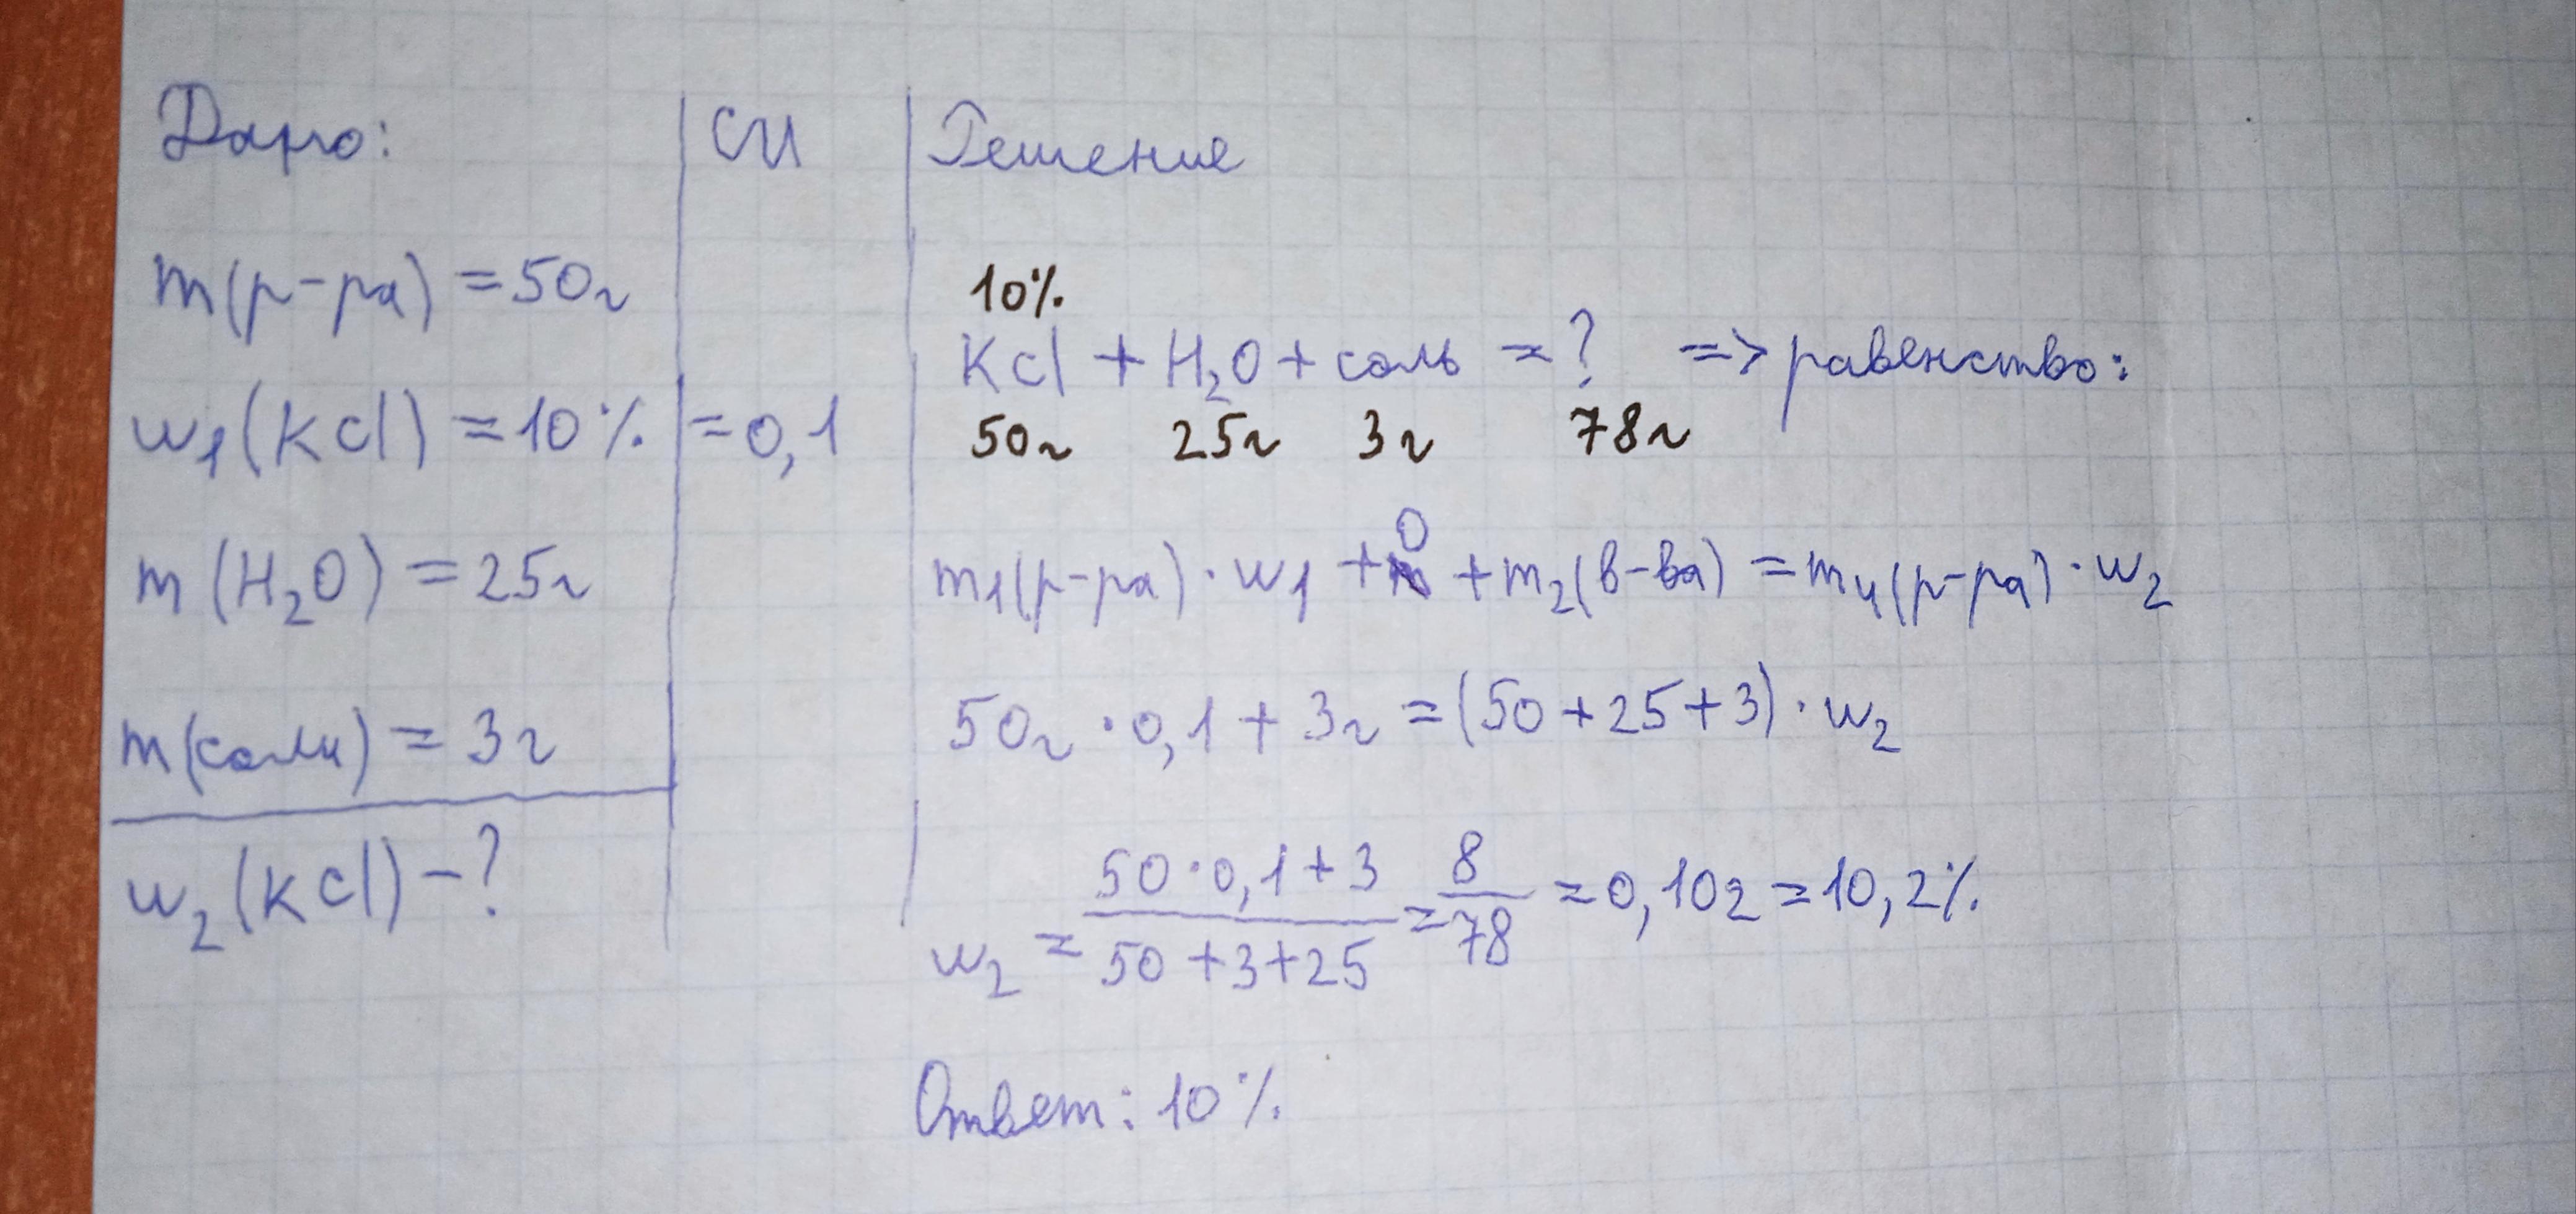 Дано:
m(р-ра) = 50г
w₁(KCl) = 10%
m(H₂O) = 25г
m(соли) = 3г
w₂(KCl) - ?
СИ
= 0,1
Решение
10%
KCl + H₂O + соль = ? => равенство:
50г 25г 3г 78г
0
m₁(р-ра) · w₁ + + m₂(в-ва) = m₄(р-ра) · w₂
50г · 0,1 + 3г = (50 + 25 + 3) · w₂
50 · 0,1 + 3 8
w₂ = = = 0,102 = 10,2%
50 + 3 + 25 78
Ответ: 10%